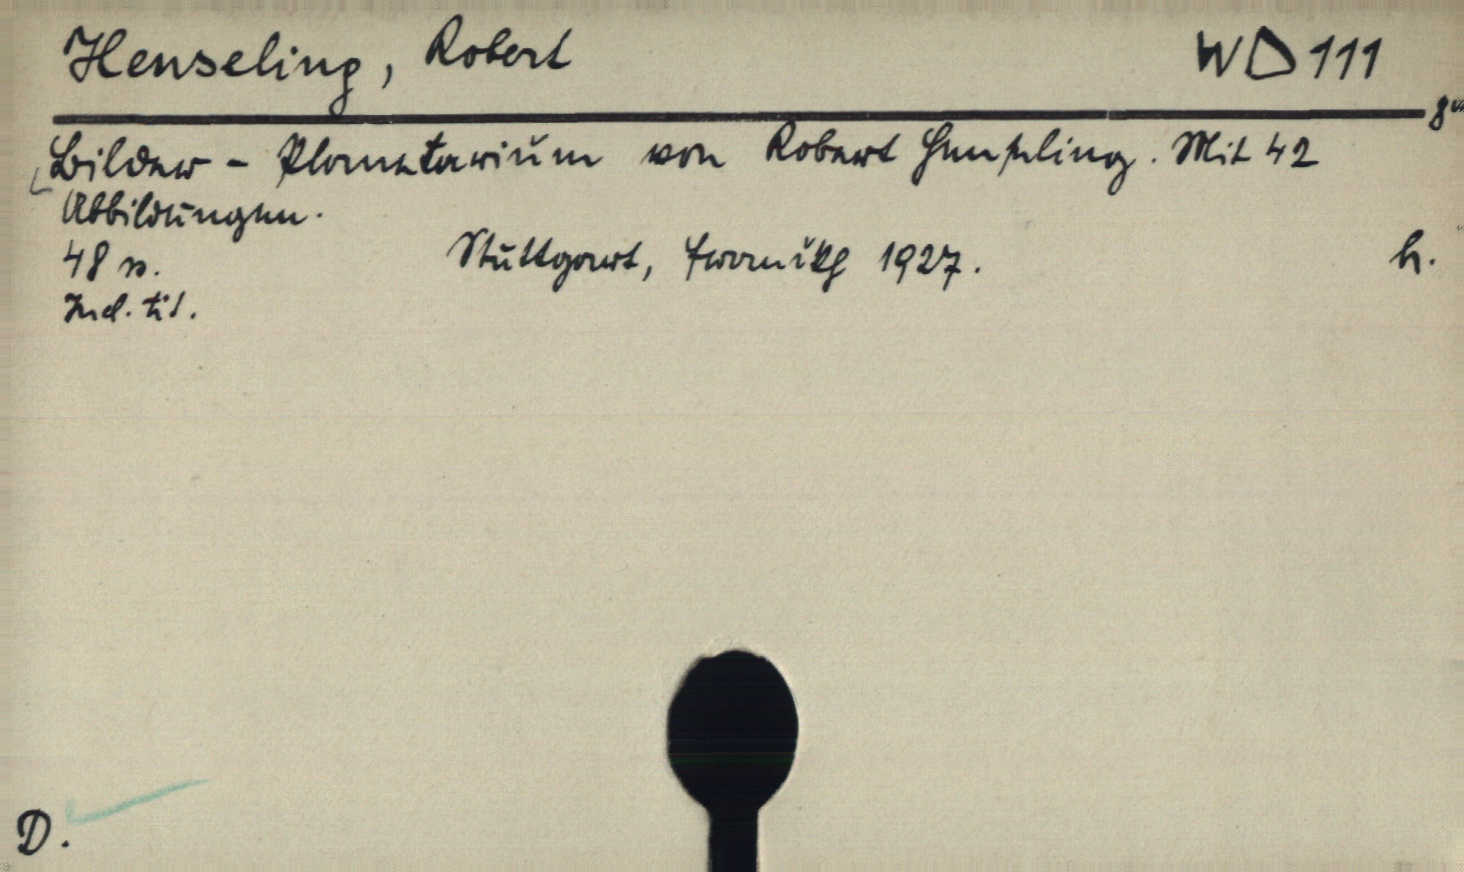 Henseling, Robert WD 111
8°
Bilder-Planetarium von Robert Henseling. Mit 42
Abbildungen.
48 s. Stuttgart, Franckh 1927. h.
Ind. tit.
D.